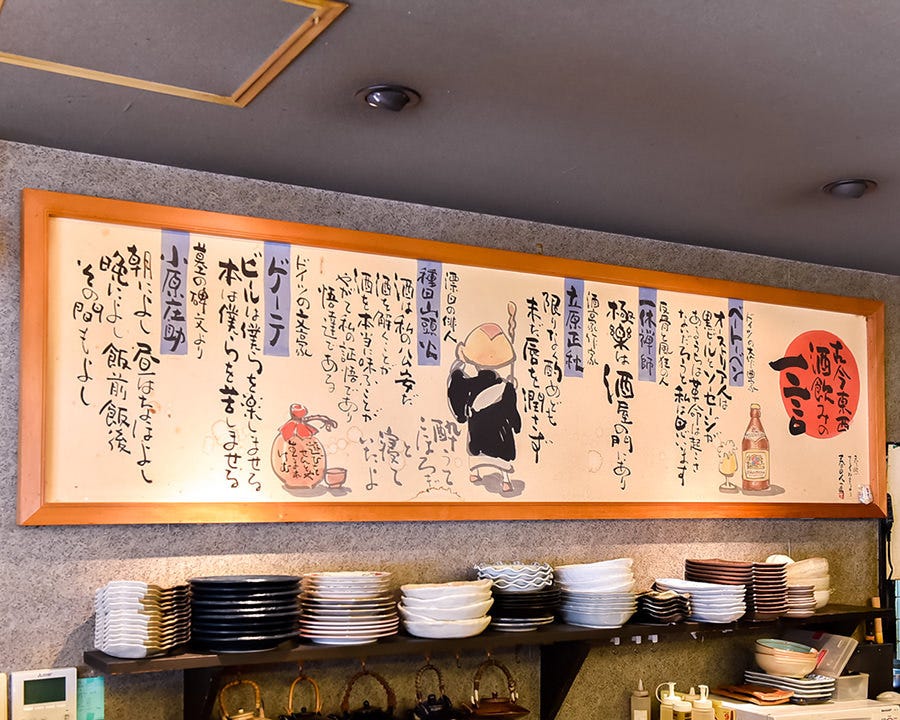 古今東西
酒飲みの
一言
ベートーベン
ドイツの大作曲家
オーストリア人は
黒ビールとソーセージが
あるうちは革命は起こさ
ないだろうと私は思います
一休禅師
反骨と風狂の人
極楽は
酒屋の門にあり
立原正秋
酒豪の作家
限りなく酌めども
未だ唇を潤さず
酔うて
こほろぎと
寝て
いたよ
種田山頭火
漂泊の俳人
酒は私の公安だ
酒を解くことが
酒を本当に味ふことが
やがて私の証悟であり
悟達である
ゲーテ
ドイツの文豪家
ビールは僕らを楽しませる
本は僕らを苦しませる
小原庄助
墓の碑文より
朝によし 昼なほよし
晩によし 飯前飯後
その間もよし